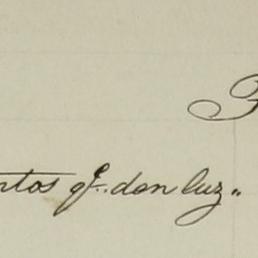 ntos qe. don luz"